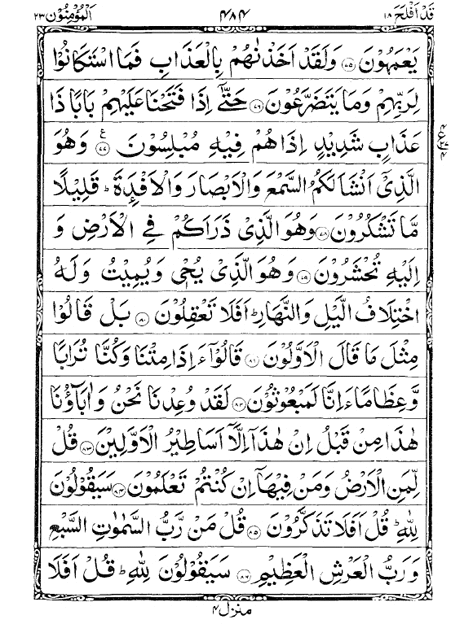 قَدْ اَفْلَحَ ١٨ ٤٨٤ اَلْمُؤْمِنُوْن ٢٣
يَعْمَهُوْنَ ﴿٧٥﴾ وَلَقَدْ اَخَذْنٰهُمْ بِالْعَذَابِ فَمَا اسْتَكَانُوْا
لِرَبِّهِمْ وَمَا يَتَضَرَّعُوْنَ ﴿٧٦﴾ حَتّٰٓى اِذَا فَتَحْنَا عَلَيْهِمْ بَابًا ذَا
عَذَابٍ شَدِيْدٍ اِذَا هُمْ فِيْهِ مُبْلِسُوْنَ ﴿٧٧﴾ وَهُوَ
الَّذِيْٓ اَنْشَاَ لَكُمُ السَّمْعَ وَالْاَبْصَارَ وَالْاَفْـِٕدَةَ ؕ قَلِيْلًا
مَّا تَشْكُرُوْنَ ﴿٧٨﴾ وَهُوَ الَّذِيْ ذَرَاَكُمْ فِى الْاَرْضِ وَ
اِلَيْهِ تُحْشَرُوْنَ ﴿٧٩﴾ وَهُوَ الَّذِيْ يُحْيٖ وَيُمِيْتُ وَلَهُ
اخْتِلَافُ الَّيْلِ وَالنَّهَارِ ؕ اَفَلَا تَعْقِلُوْنَ ﴿٨٠﴾ بَلْ قَالُوْا
مِثْلَ مَا قَالَ الْاَوَّلُوْنَ ﴿٨١﴾ قَالُوْٓا ءَاِذَا مِتْنَا وَكُنَّا تُرَابًا
وَّعِظَامًا ءَاِنَّا لَمَبْعُوْثُوْنَ ﴿٨٢﴾ لَقَدْ وُعِدْنَا نَحْنُ وَاٰبَآؤُنَا
هٰذَا مِنْ قَبْلُ اِنْ هٰذَآ اِلَّآ اَسَاطِيْرُ الْاَوَّلِيْنَ ﴿٨٣﴾ قُلْ
لِّمَنِ الْاَرْضُ وَمَنْ فِيْهَآ اِنْ كُنْتُمْ تَعْلَمُوْنَ ﴿٨٤﴾ سَيَقُوْلُوْنَ
لِلّٰهِ ؕ قُلْ اَفَلَا تَذَكَّرُوْنَ ﴿٨٥﴾ قُلْ مَنْ رَّبُّ السَّمٰوٰتِ السَّبْعِ
وَرَبُّ الْعَرْشِ الْعَظِيْمِ ﴿٨٦﴾ سَيَقُوْلُوْنَ لِلّٰهِ ؕ قُلْ اَفَلَا
منزل ٤